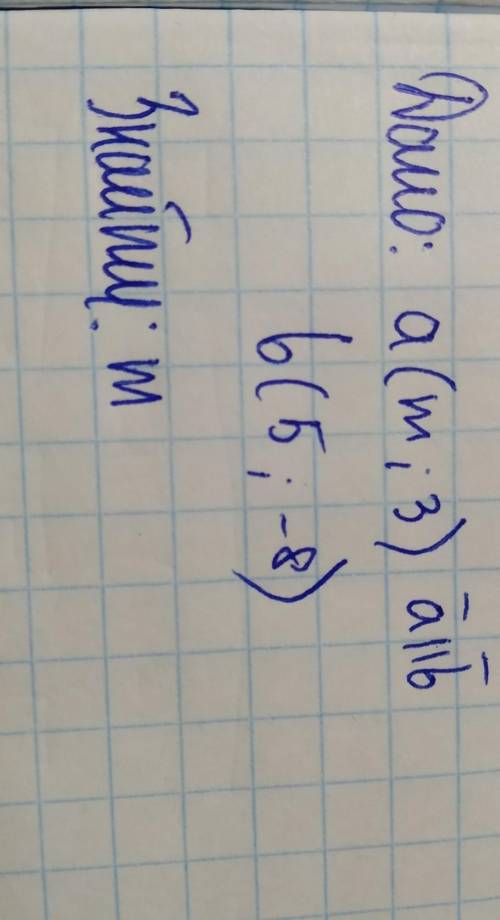 Дано: a(m; 3) a̅ || b̅
b(5; -8)
Знайти: m